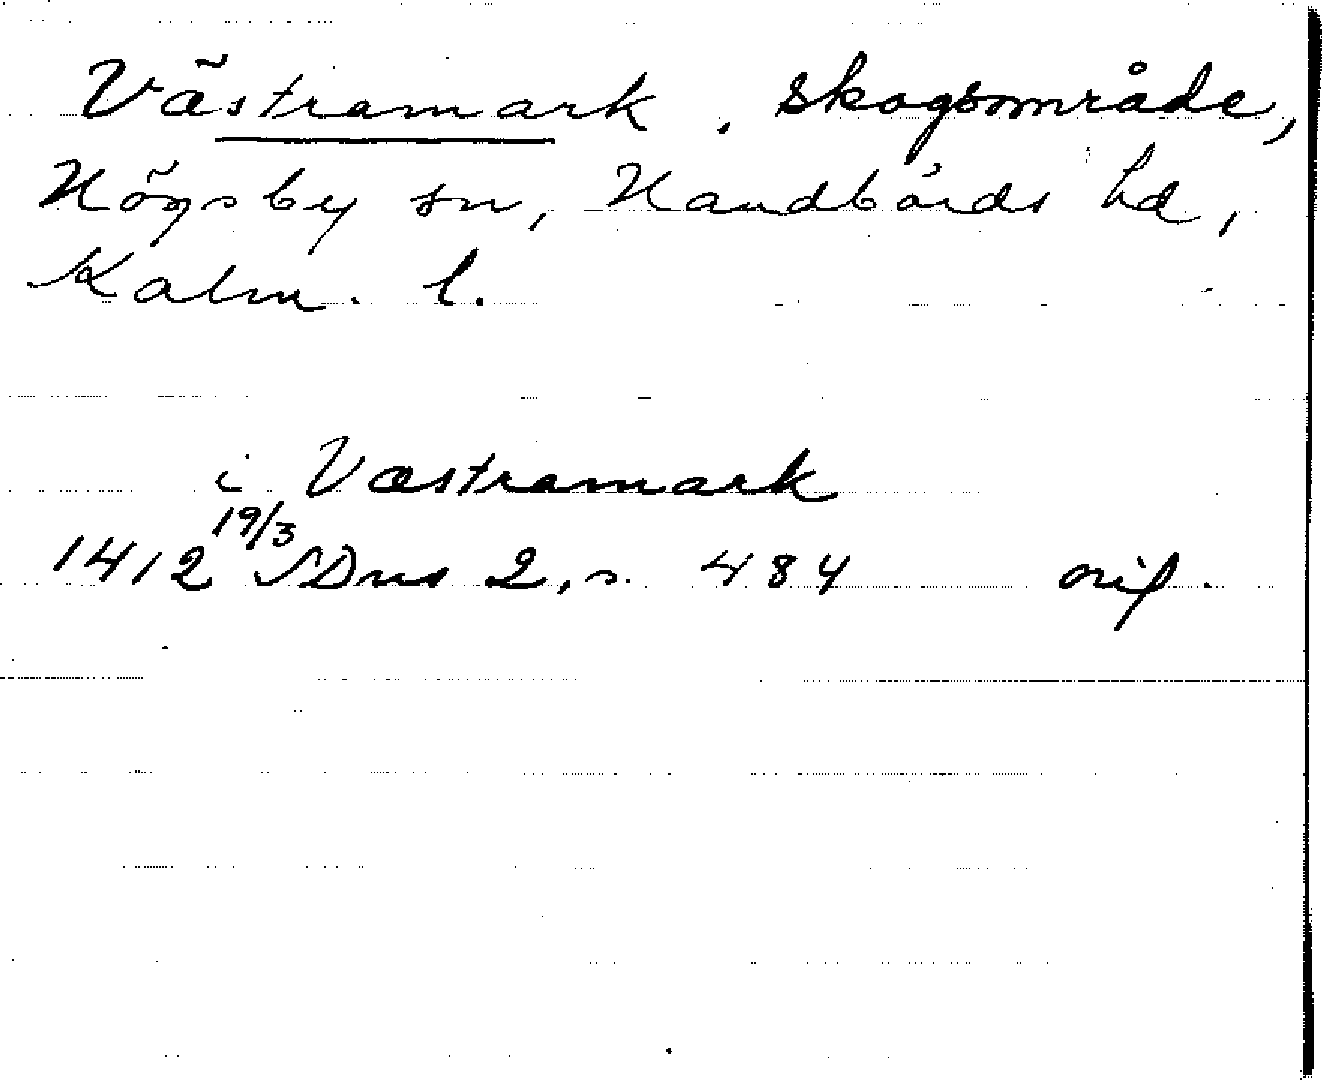 Västramark, skogsområde,
Högsby sn, Handbörds hd,
Kalm. l.
i Væstramark
1412 19/3 SDns 2, s. 484 orig.